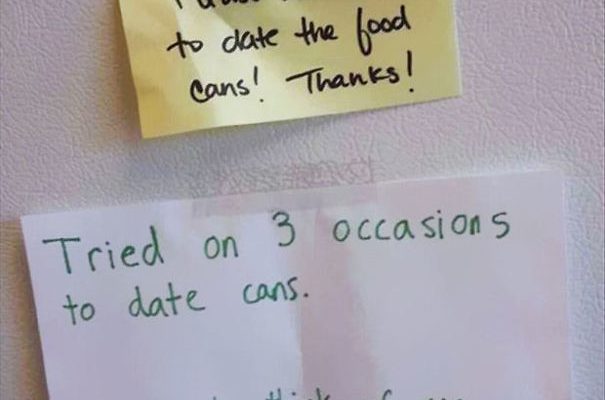 to date the food
cans! Thanks!
Tried on 3 occasions
to date cans.